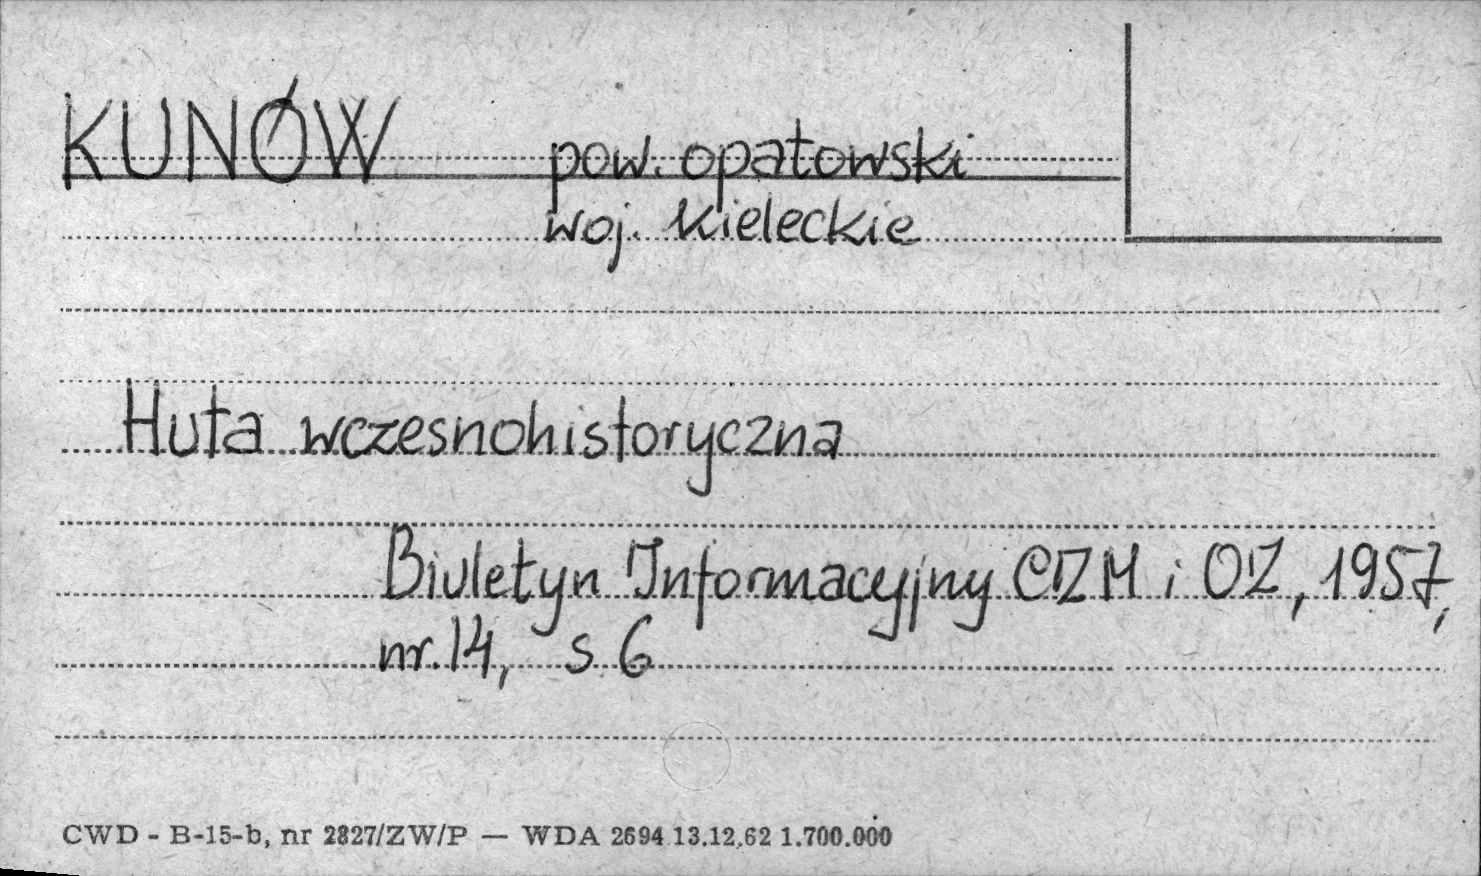 KUNÓW pow. opatowski
woj. Kieleckie
Huta wczesnohistoryczna
Biuletyn Informacyjny CZM i OZ, 1957,
nr. 14, s. 6
CWD - B-15-b, nr 2827/ZW/P — WDA 2694 13.12.62 1.700.000